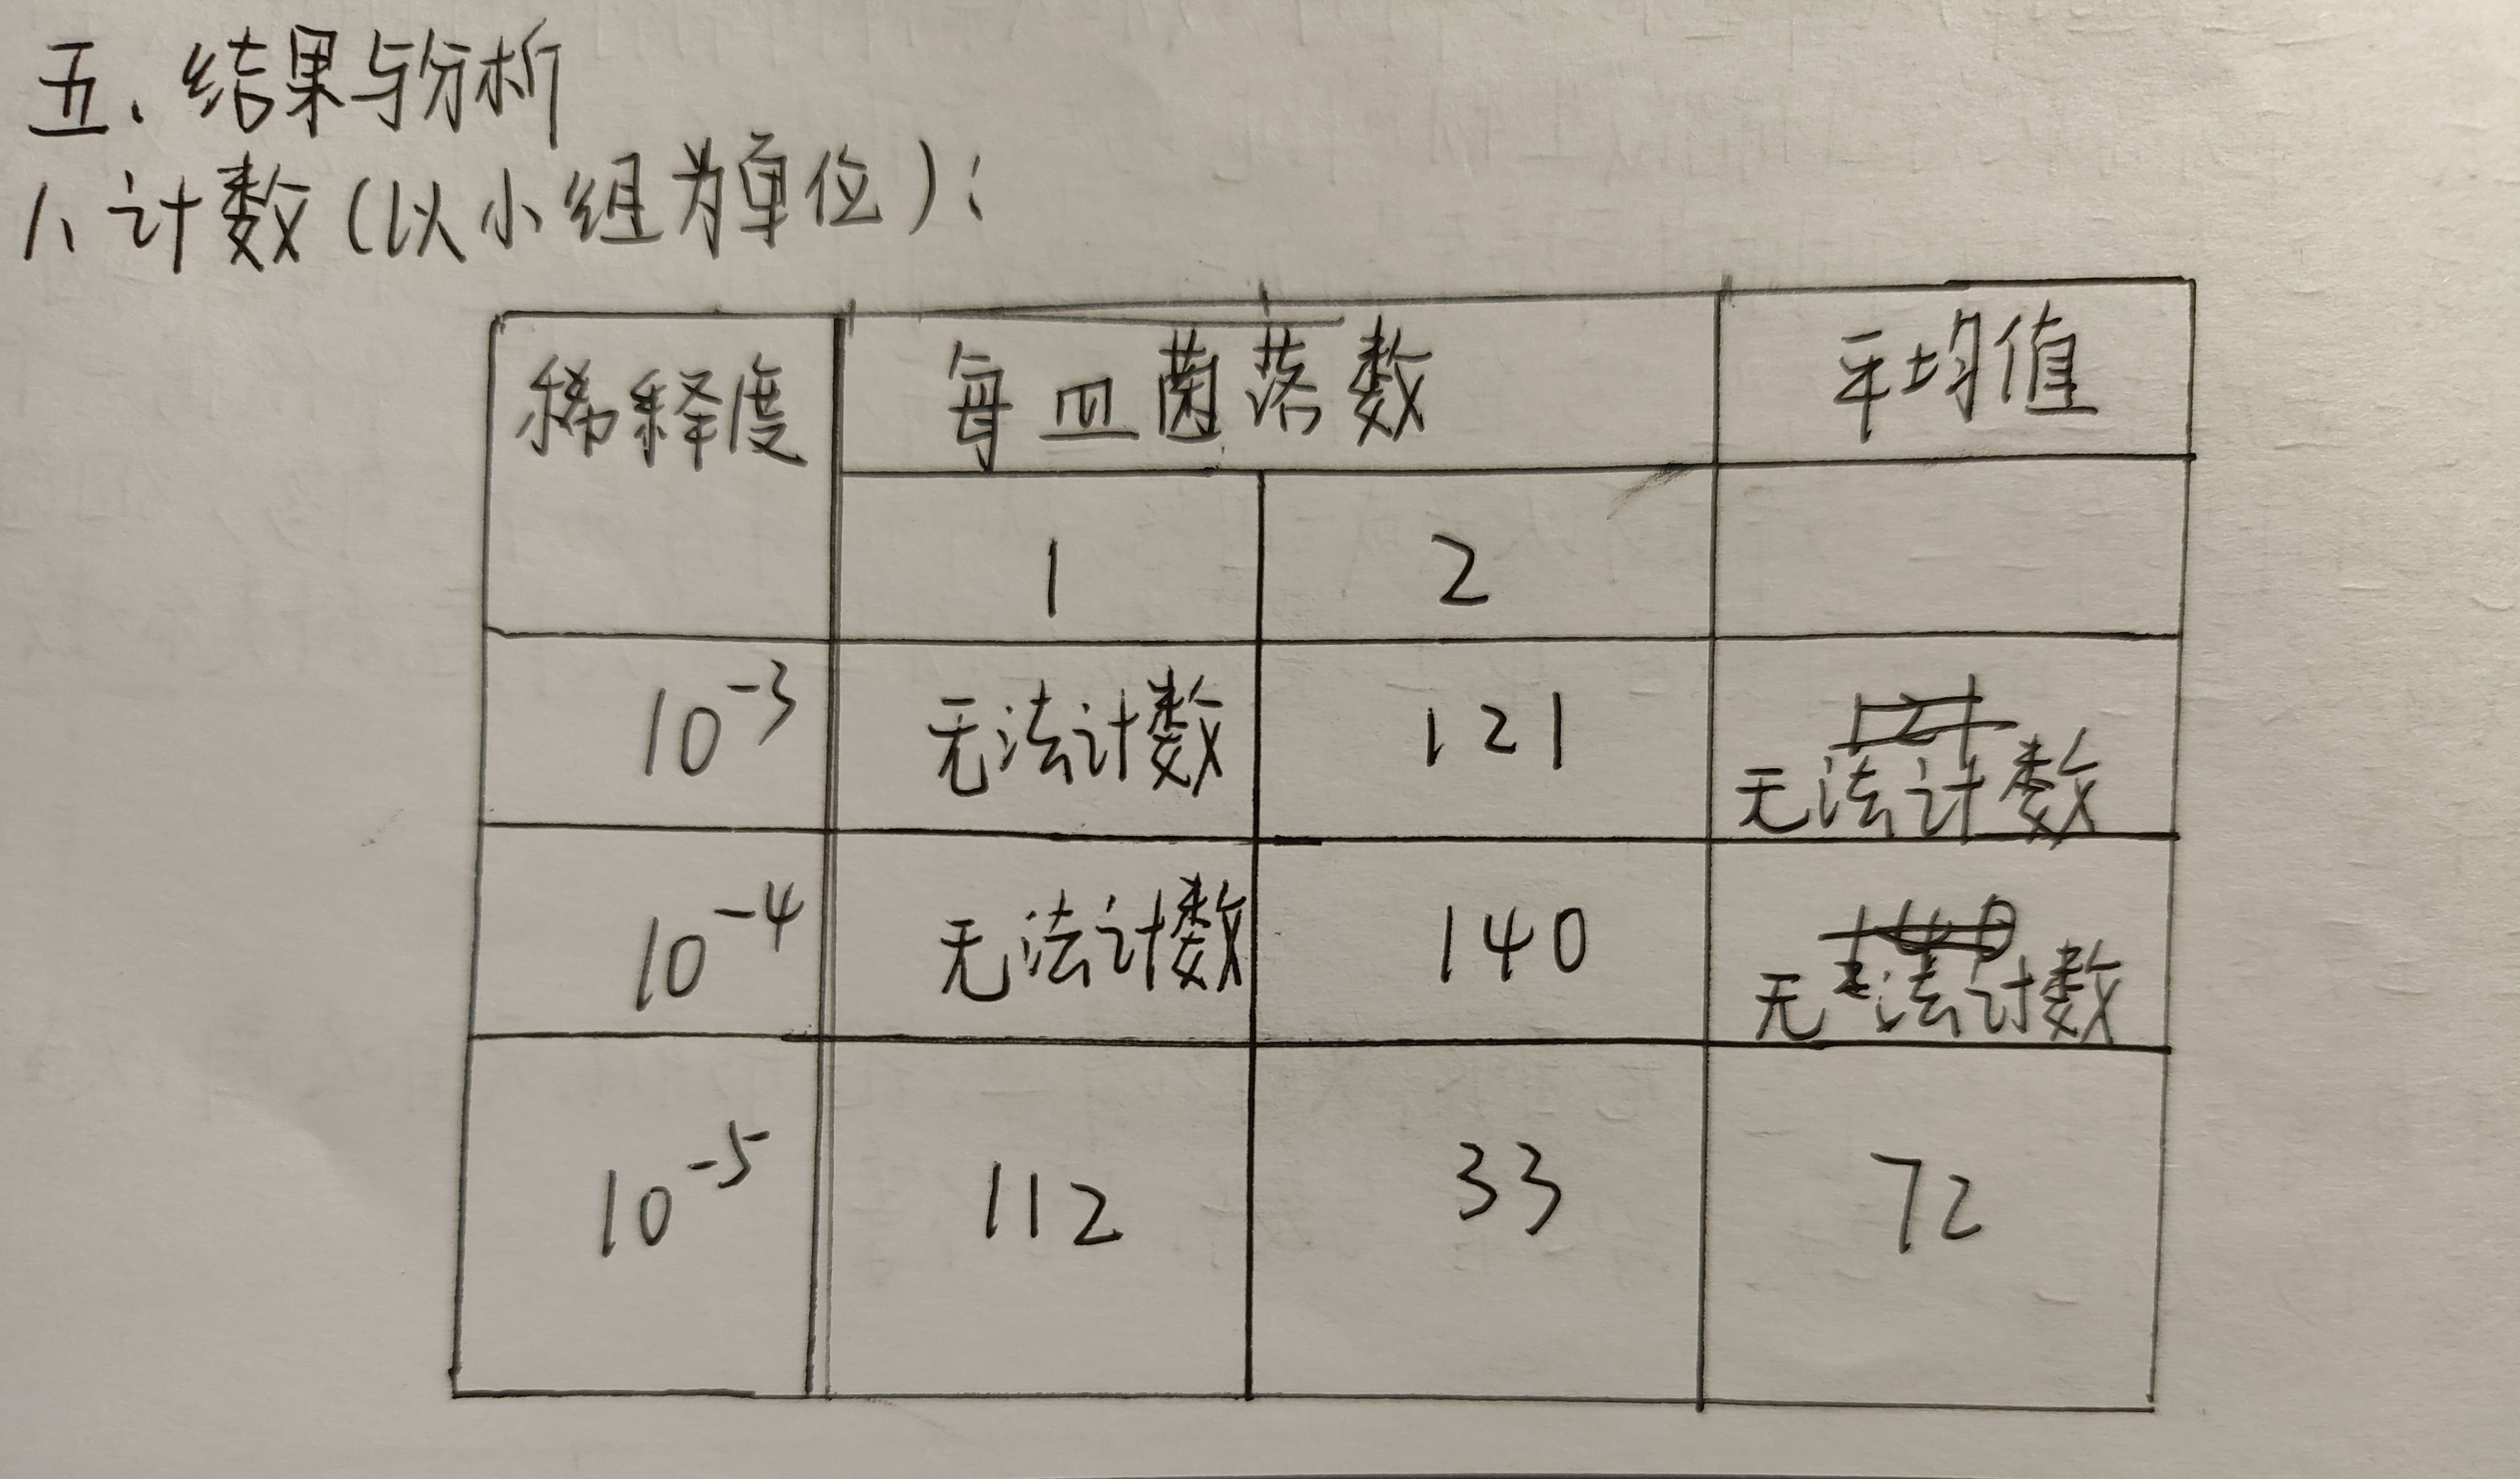 五、结果与分析
1、计数(以小组为单位):
稀释度 每皿菌落数 平均值
1 2
10⁻³ 无法计数 121 无法计数
10⁻⁴ 无法计数 140 无法计数
10⁻⁵ 112 33 72